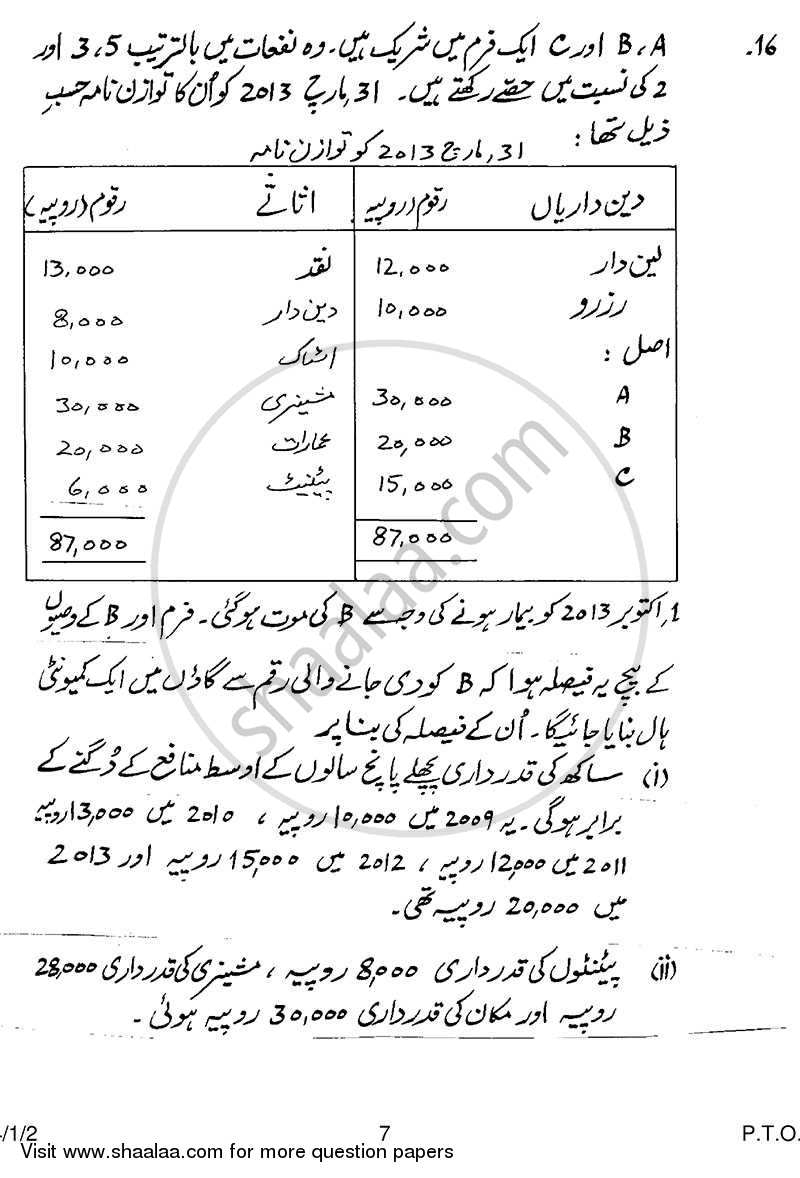 16. B ، A اور C ایک فرم میں شریک ہیں۔ وہ نفعات میں بالترتیب 5، 3 اور
2 کی نسبت میں حصے رکھتے ہیں۔ 31, مارچ 2013 کو اُن کا توازن نامہ حسبِ
ذیل تھا:
31, مارچ 2013 کو توازن نامہ
دین داریاں رقوم (روپیہ) اثاثے رقوم (روپیہ)
لین دار 12,000 نقد 13,000
رزرو 10,000 دین دار 8,000
اصل : اسٹاک 10,000
A 30,000 مشینری 30,000
B 20,000 عمارات 20,000
C 15,000 پیٹنیٹ 6,000
87,000 87,000
1, اکتوبر 2013 کو بیمار ہونے کی وجہ سے B کی موت ہوگئی۔ فرم اور B کے وصیوں
کے بیچ یہ فیصلہ ہوا کہ B کو دی جانے والی رقم سے گاؤں میں ایک کمیونٹی
ہال بنایا جائیگا۔ اُن کے فیصلہ کی بنا پر
(i) ساکھ کی قدرداری پچھلے پانچ سالوں کے اوسط منافع کے دُگنے کے
برابر ہوگی۔ یہ 2009 میں 10,000 روپیہ ، 2010 میں 13,000 روپیہ
2011 میں 12,000 روپیہ ، 2012 میں 15,000 روپیہ اور 2013
میں 20,000 روپیہ تھی۔
(ii) پیٹنٹوں کی قدرداری 8,000 روپیہ ، مشینری کی قدرداری 28,000
روپیہ اور مکان کی قدرداری 30,000 روپیہ ہوئی۔
shaalaa.com
/1/2 7 P.T.O.
Visit www.shaalaa.com for more question papers